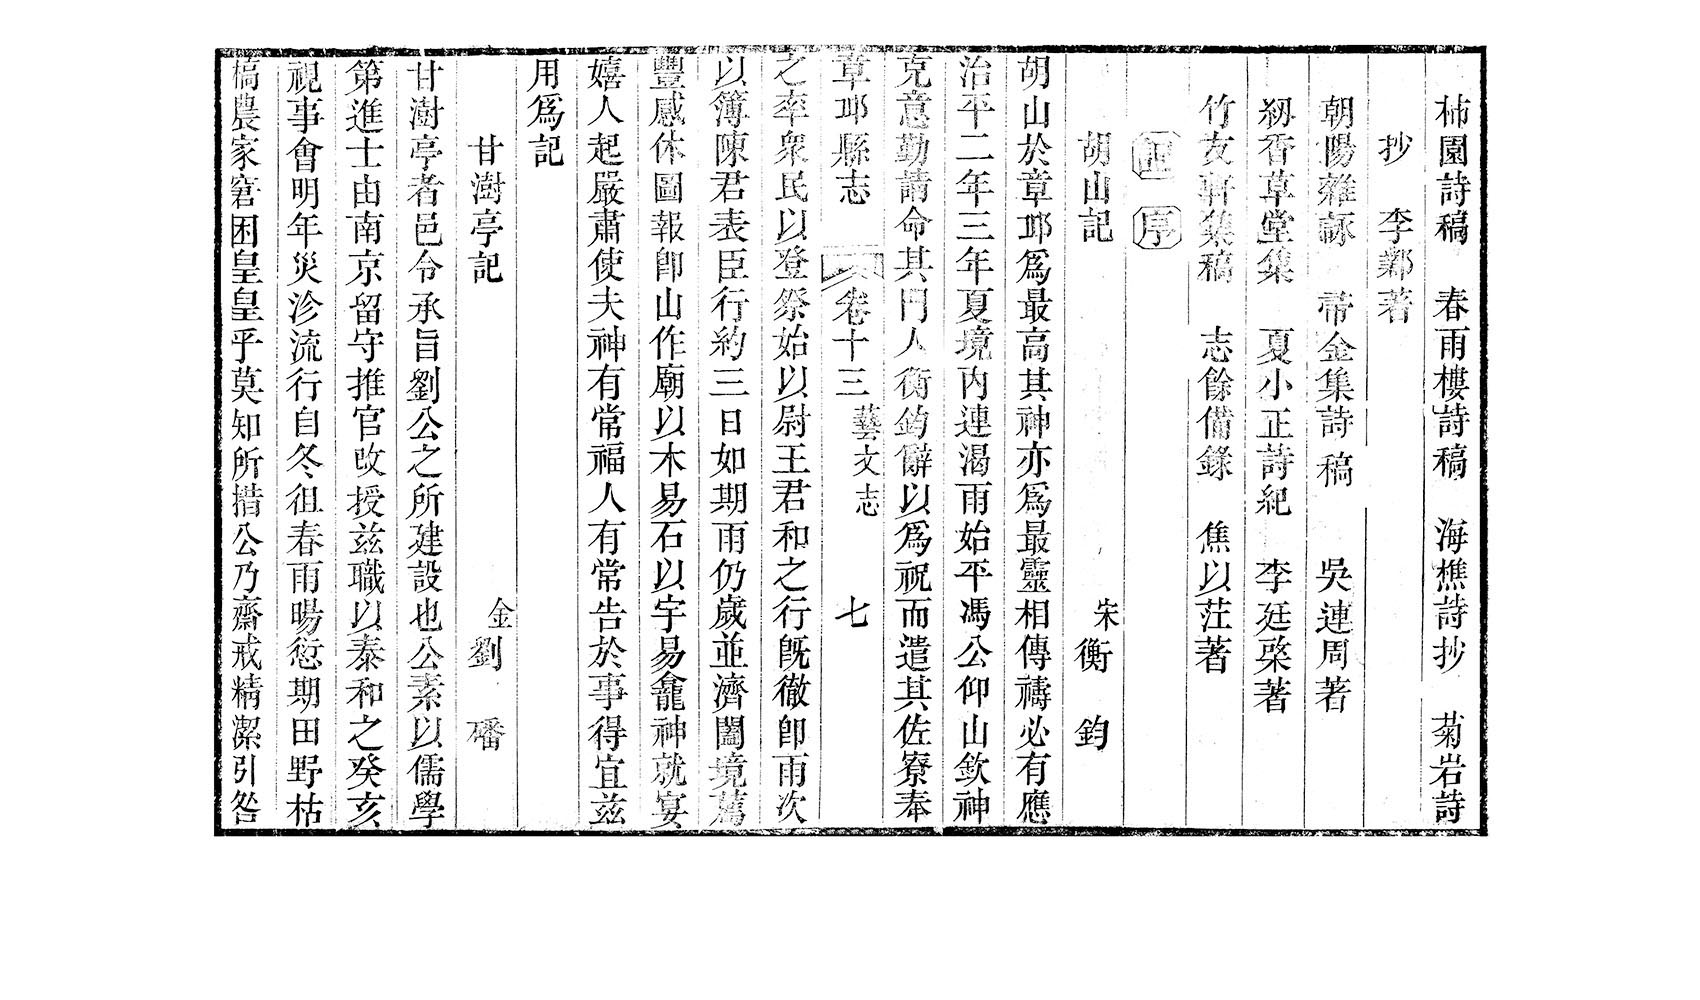 柿園詩稿　春雨樓詩稿　海樵詩抄　菊岩詩
抄　李鄴著
朝陽雜詠　帝金集詩稿　吳連周著
紉香草堂集　夏小正詩紀　李廷棨著
竹友軒集稿　志餘備錄　焦以茳著
記序
胡山記　宋衡　鈞
胡山於章邱爲最高其神亦爲最靈相傳禱必有應
治平二年三年夏境內連渴雨始平馮公仰山欽神
克意勤請命其門人衡鈞辭以爲祝而遣其佐寮奉
章邱縣志　卷十三　藝文志　七
之率衆民以登祭始以尉王君和之行旣徹卽雨次
以簿陳君表臣行約三日如期雨仍歲並濟闔境薦
豐感休圖報卽山作廟以木易石以宇易龕神就宴
嬉人起嚴肅使夫神有常福人有常告於事得宜兹
用爲記
甘澍亭記　金劉　磻
甘澍亭者邑令承旨劉公之所建設也公素以儒學
第進士由南京留守推官改授兹職以泰和之癸亥
視事會明年災沴流行自冬徂春雨暘愆期田野枯
槁農家窘困皇皇乎莫知所措公乃齋戒精潔引咎